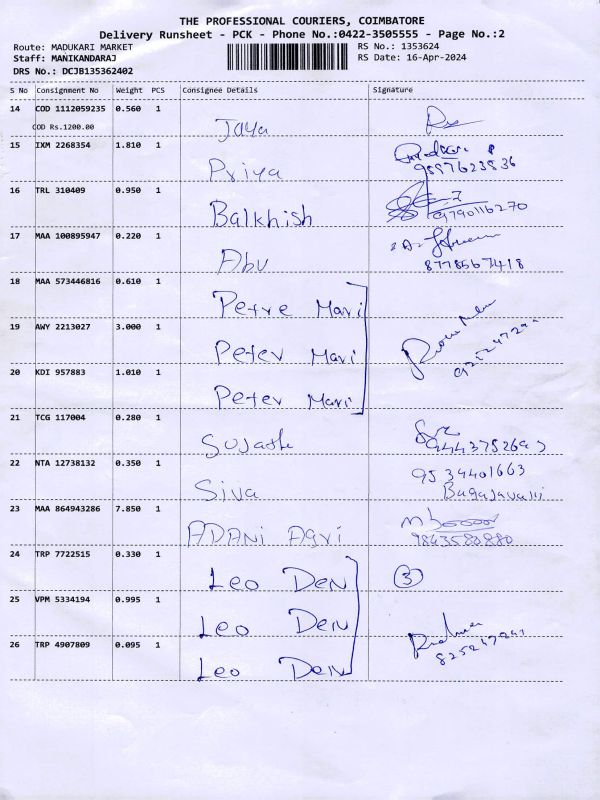 THE PROFESSIONAL COURIERS, COIMBATORE
Delivery Runsheet - PCK - Phone No.:0422-3505555 - Page No.:2
Route: MADUKARI MARKET RS No.: 1353624
Staff: MANIKANDARAJ RS Date: 16-Apr-2024
DRS No.: DCJB135362402
S No Consignment No Weight PCS Consignee Details Signature
14 COD 1112059235 0.560 1
COD Rs.1200.00 Jaya
15 IXM 2268354 1.810 1
Priya 9597623536
16 TRL 310409 0.950 1
Balkhish 9790116270
17 MAA 100895947 0.220 1
Abu 8778567418
18 MAA 573446816 0.610 1
Petre Mari
19 AWY 2213027 3.000 1
Peter Mari
20 KDI 957883 1.010 1
Peter Mari
21 TCG 117004 0.280 1
Sujatha
22 NTA 12738132 0.350 1 9534401663
Siva
23 MAA 864943286 7.850 1
ADANi Agri 9843580880
24 TRP 7722515 0.330 1
Leo Den 3
25 VPM 5334194 0.995 1
Leo Den
26 TRP 4907809 0.095 1
Leo Den